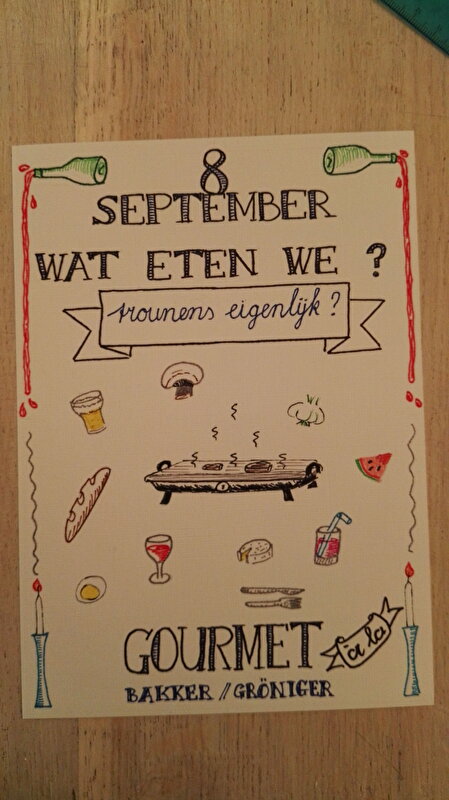 8
SEPTEMBER
WAT ETEN WE ?
trounens eigenlijk ?
GOURMET à la
BAKKER // GRÖNIGER